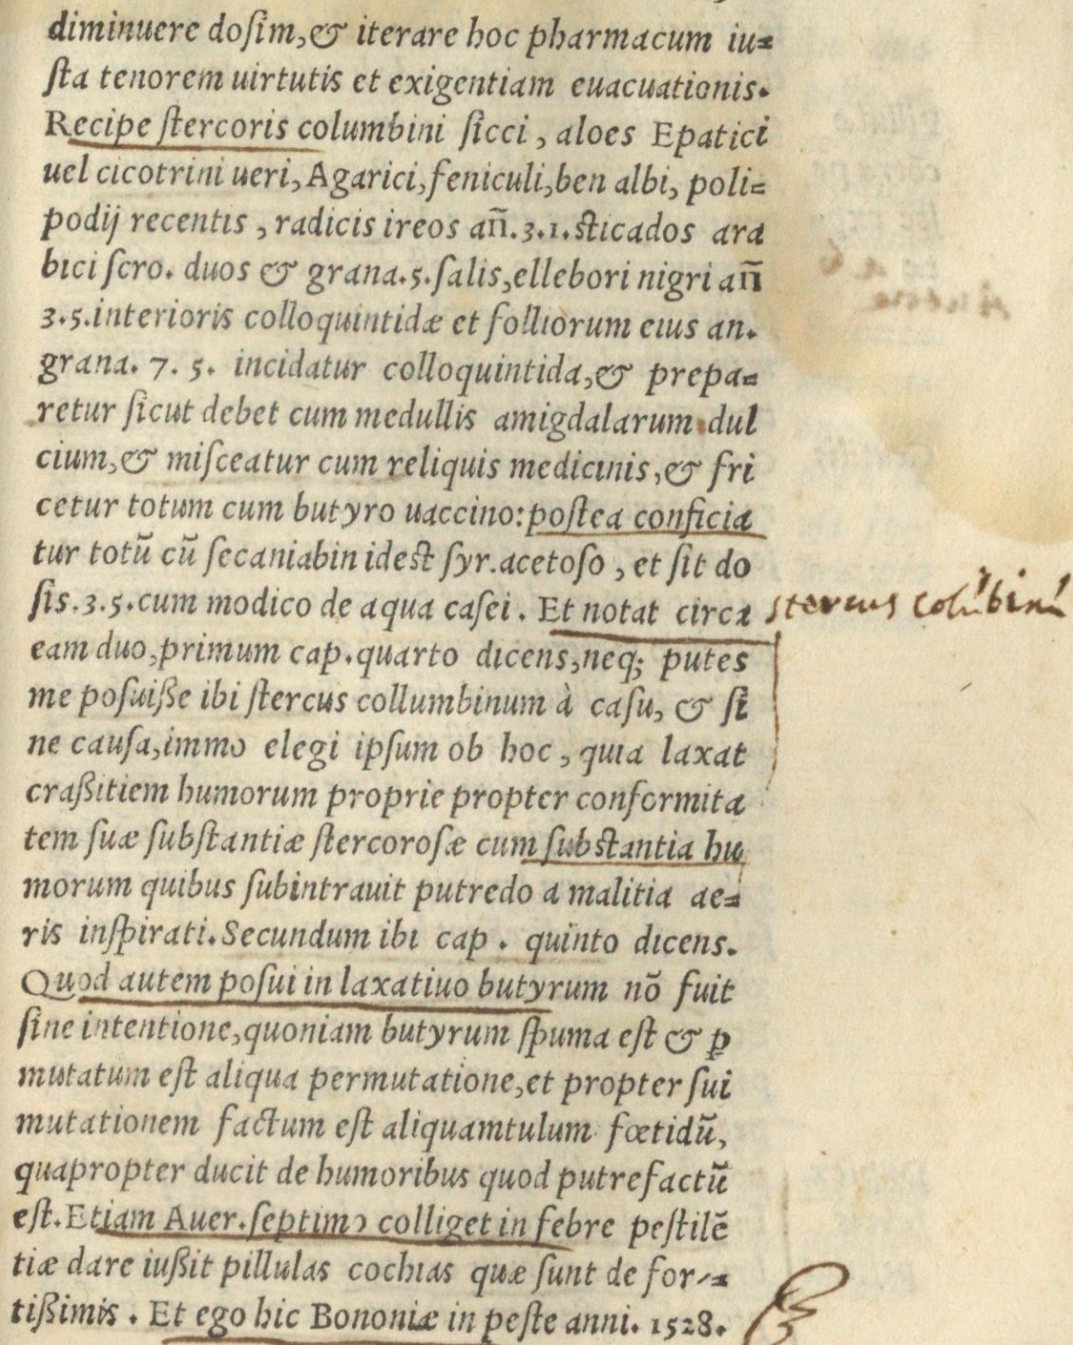 diminuere dosim, & iterare hoc pharmacum iu=
sta tenorem uirtutis et exigentiam euacuationis.
Recipe stercoris columbini sicci, aloes Epatici
uel cicotrini ueri, Agarici, feniculi, ben albi, poli=
podij recentis, radicis ireos añ.3.1.sticados ara
bici scro. duos & grana.5.salis, ellebori nigri añ
3.5.interioris colloquintidæ et folliorum eius an.
grana. 7. 5. incidatur colloquintida, & prepa=
retur sicut debet cum medullis amigdalarum dul
cium, & misceatur cum reliquis medicinis, & fri
cetur totum cum butyro uaccino: postea conficia
tur totũ cũ secaniabin idest syr.acetoso, et sit do
sis.3.5.cum modico de aqua casei. Et notat circa
stercus colũbinũ
eam duo, primum cap.quarto dicens, neq; putes
me posuiße ibi stercus collumbinum à casu, & si
ne causa, immo elegi ipsum ob hoc, quia laxat
craßitiem humorum proprie propter conformita
tem suæ substantiæ stercorosæ cum substantia hu
morum quibus subintrauit putredo a malitia ae=
ris inspirati. Secundum ibi cap. quinto dicens.
Quod autem posui in laxatiuo butyrum nõ fuit
sine intentione, quoniam butyrum spuma est & ꝑ
mutatum est aliqua permutatione, et propter sui
mutationem factum est aliquamtulum fœtidũ,
quapropter ducit de humoribus quod putrefactũ
est. Etiam Auer. septimo colliget in febre pestilẽ
tiæ dare iußit pillulas cochias quæ sunt de for=
tißimis. Et ego hic Bononiæ in peste anni. 1528.